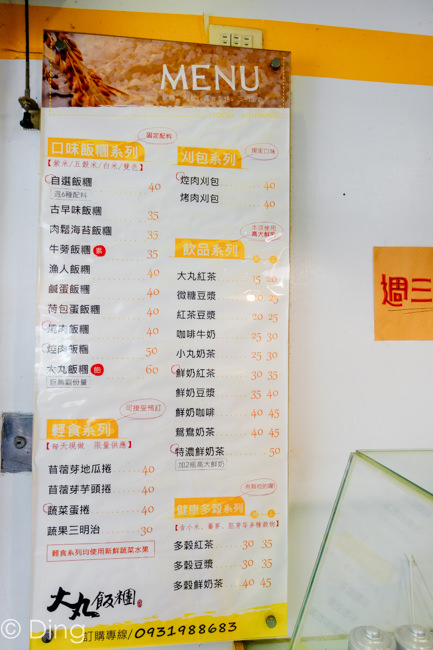 MENU
固定配料
口味飯糰系列
【紫米/五穀米/白米/雙色】
自選飯糰 40
選6種配料
古早味飯糰 35
肉鬆海苔飯糰 35
牛蒡飯糰 素 35
漁人飯糰 40
鹹蛋飯糰 40
荷包蛋飯糰 40
燒肉飯糰 40
焢肉飯糰 50
大丸飯糰 飽 60
巨無霸份量
可接受預訂
輕食系列
【每天現做 限量供應】
苜蓿芽地瓜捲 40
苜蓿芽芋頭捲 40
蔬菜蛋捲 40
蔬果三明治 30
輕食系列均使用新鮮蔬菜水果
刈包系列
焢肉刈包 40
烤肉刈包 40
本店使用
高大鮮乳
飲品系列
大丸紅茶 15 20
微糖豆漿 20 25
紅茶豆漿 20 25
咖啡牛奶 25 30
小丸奶茶 25 30
鮮奶紅茶 30 35
鮮奶豆漿 35 40
鮮奶咖啡 40 45
鴛鴦奶茶 40 45
特濃鮮奶茶 50
加2瓶高大鮮奶
健康多穀系列
【含小米、蕎麥、胚芽等多種穀物】
多穀紅茶 30 35
多穀豆漿 30 35
多穀鮮奶茶 40 45
大丸飯糰
訂購專線/0931988683
週三
© Ding